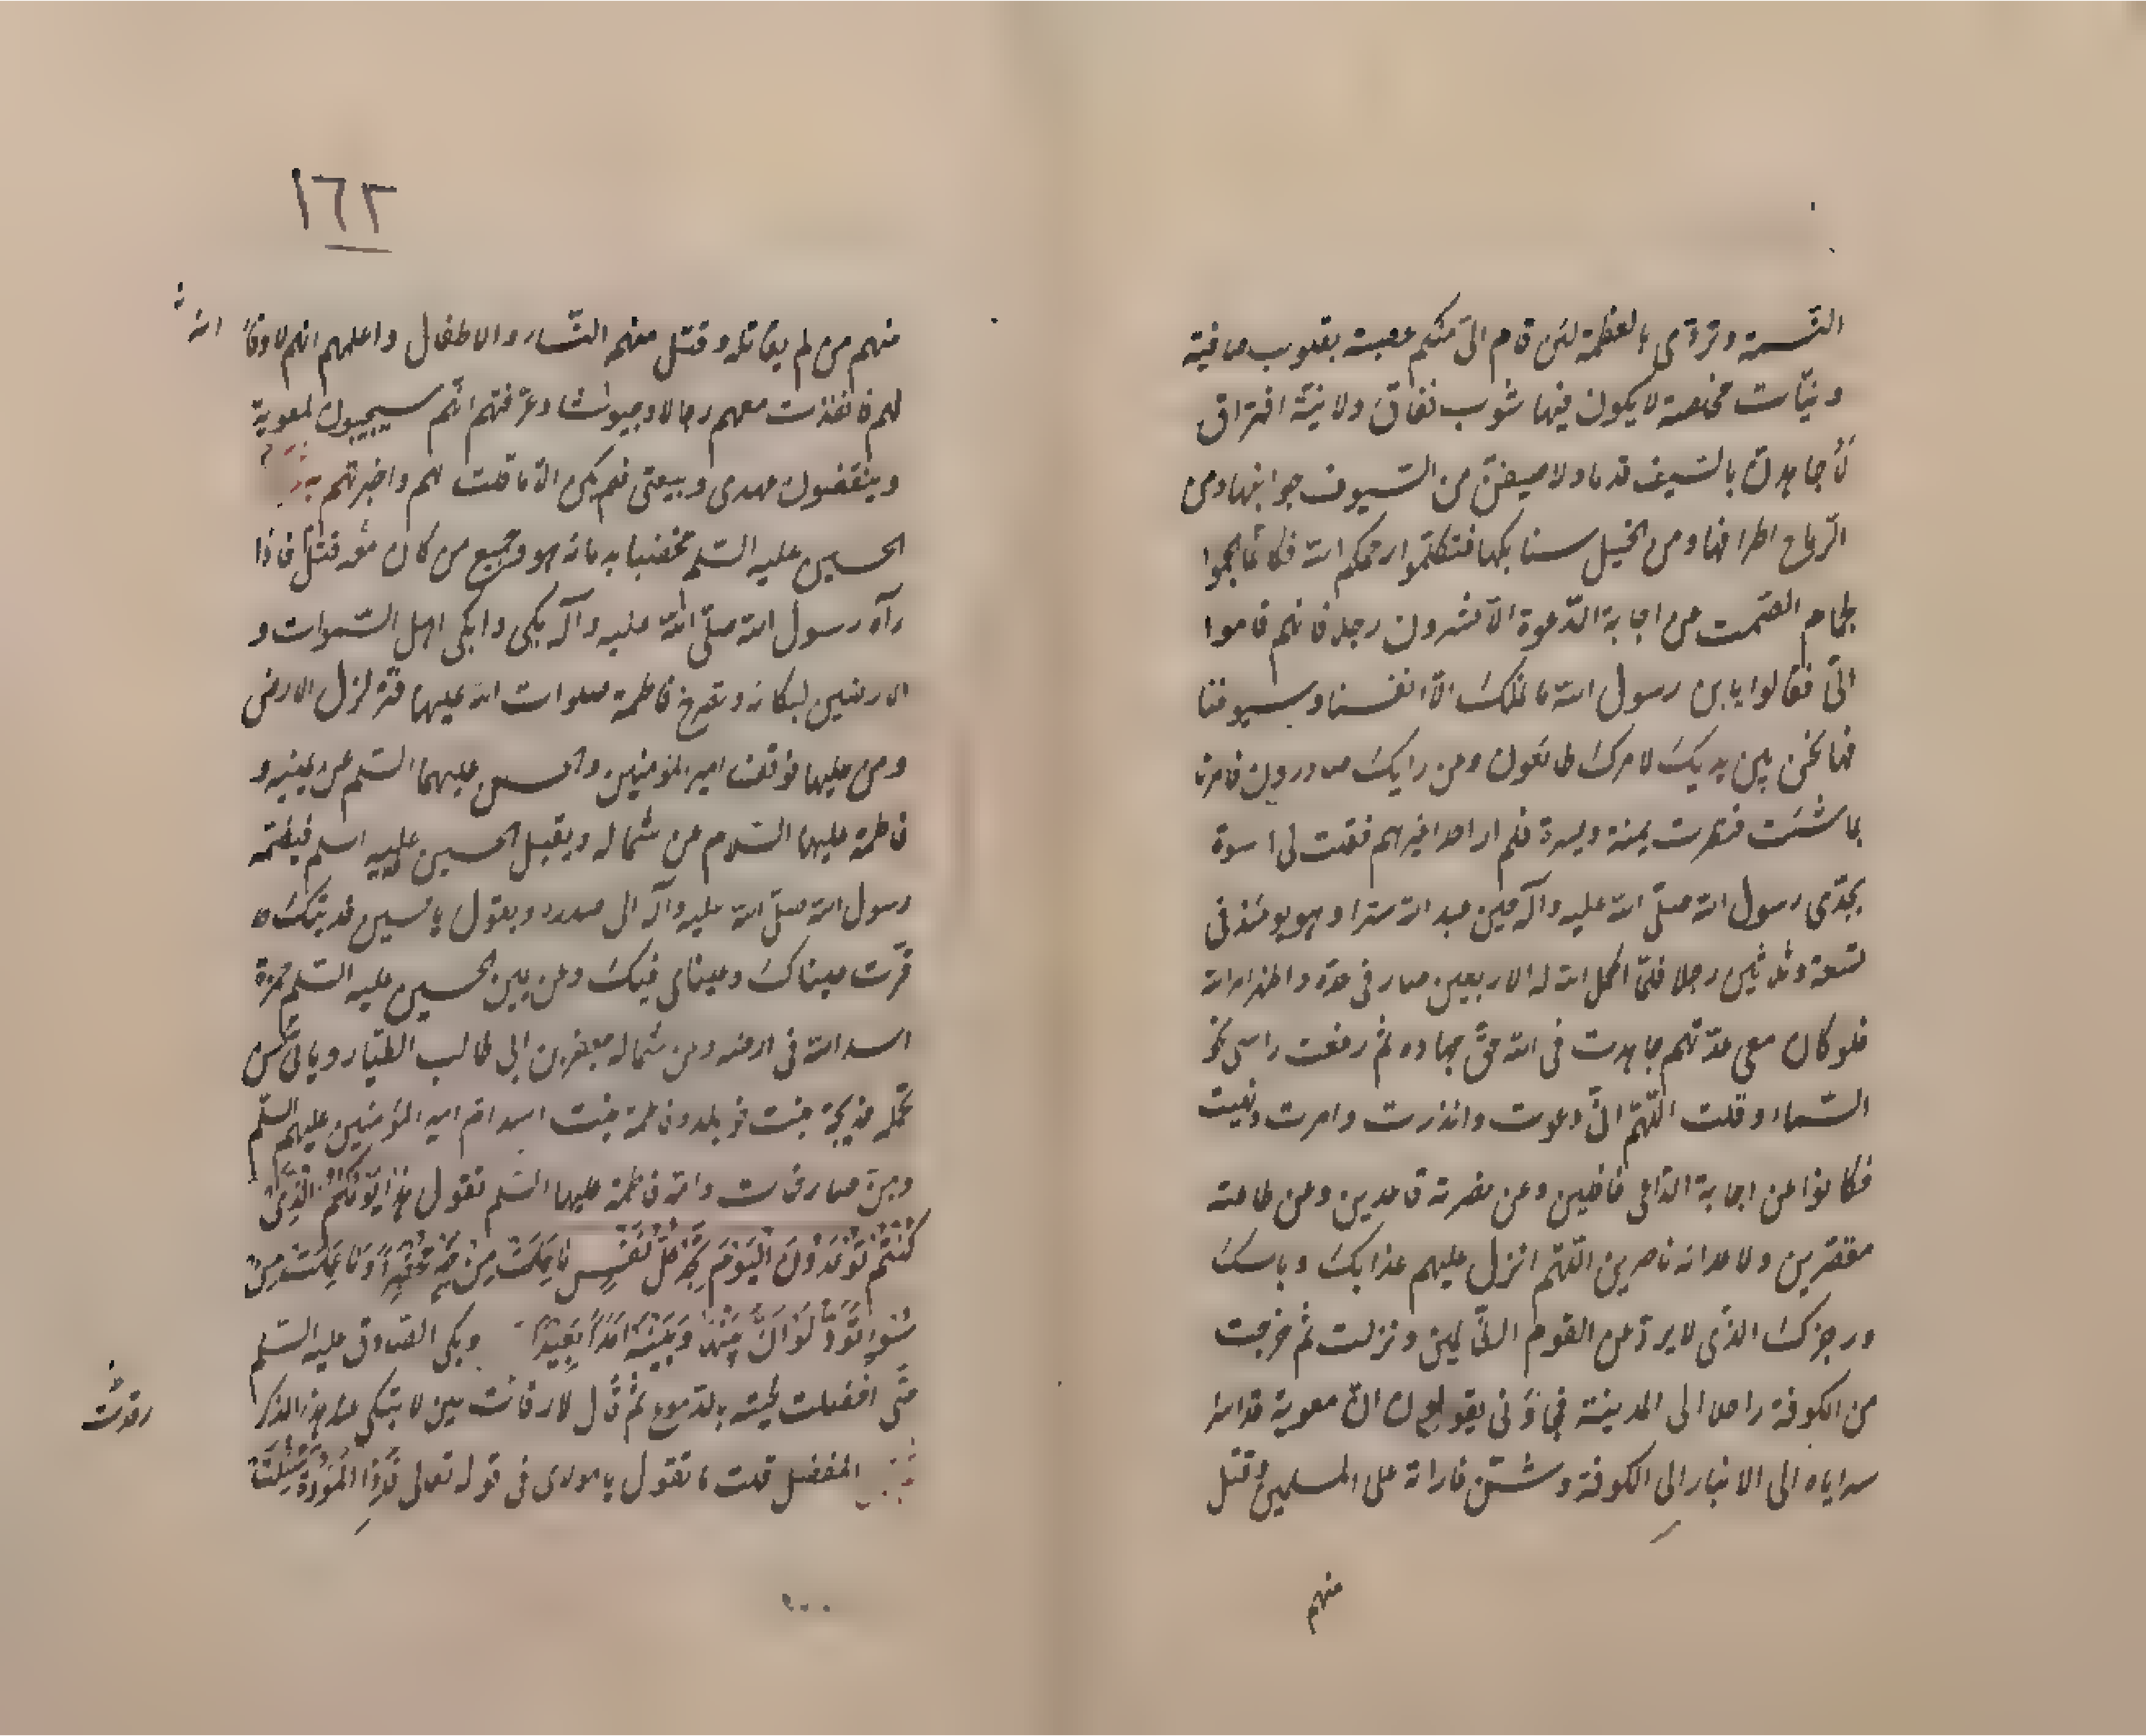 النسمة وتردّى بالعظمة لئن قام الىّ منكم عصبة بقلوب صافية
ونيّات مخلصة لا يكون فيها شوب نفاق ولا نيّة افتراق
لأجاهدنّ بالسّيف قدما ولاضيقنّ من السّيوف جوانبها ومن
الرّماح اطرافها ومن الخيل سنابكها فتكلّموا رحمكم الله فكانّما الجموا
بلجام الصّمت عن اجابة الدّعوة الّا عشرون رجلا فانهم قاموا
الىّ فقالوا يابن رسول الله ما نملك الّا انفسنا وسيوفنا
فها نحن بين يديك لامرك طائعون وعن رايك صادرون فامرنا
بما شئت فنظرت يمنة ويسرة فلم ار احدا غيرهم فقلت لى اسوة
بجدّى رسول الله صلّى الله عليه وآله حين عبد الله سرّا وهو يومئذ فى
تسعة وثلثين رجلا فلمّا اكمل الله له الاربعين صار فى عدّة واظهر امر الله
فلو كان معى عدّتهم جاهدت فى الله حقّ جهاده ثم رفعت راسى نحو
السّماء وقلت اللّهمّ انّى دعوت وانذرت وامرت ونهيت
فكانوا عن اجابة الدّاعى غافلين وعن نصرته قاعدين وعن طاعته
مقصّرين ولاعدائه ناصرين اللّهمّ انزل عليهم عذابك وباسك
ورجزك الذى لا يردّ عن القوم الظّالمين ونزلت ثم خرجت
من الكوفة راحلا الى المدينة فجاؤنى يقولون انّ معوية
سراياه الى الانبار الى الكوفة وشنّ غاراته على المسلمين وقتل
منهم
١٦٢
منهم من لم يقاتله وقتل منهم النّساء والاطفال واعلمهم انهم لا وفاء
لهم فانفذت معهم رجالا وجيوشا وعرّفتهم انّهم سيجيبون لمعوية
وينقضون عهدى وبيعتى فلم يكن الّا ما قلت لهم واخبرتهم
الحسين عليه السّلم مخضبا بدمائه هو وجميع من كان معه قتل فاذا
رآه رسول الله صلّى الله عليه وآله بكى وابكى اهل السّموات و
الارضين لبكائه وتصرخ فاطمة صلوات الله عليها فتزلزل الارض
ومن عليها فوقفت امير المؤمنين والحسن عليهما السّلم عن يمينه و
فاطمة عليها السّلام عن شماله ويقبل الحسين عليه السلم فيضمّه
رسول الله صلّى الله عليه وآله الى صدره ويقول يا حسين فديتك
قرّت عيناك وعيناى فيك وعن يمين الحسين عليه السّلم حمزة
اسد الله فى ارضه وعن شماله جعفر بن ابى طالب الطّيار ويأتى محسن
تحمله خديجة بنت خويلد وفاطمة بنت اسد ام امير المؤمنين عليهم السّلم
وهنّ صارخات وامّه فاطمة عليها السّلم تقول هذا يَوْمُكُمُ الَّذِى
كُنْتُمْ تُوعَدُونَ الْيَوْمَ تَجِدُ كُلُّ نَفْسٍ مَا عَمِلَتْ مِنْ خَيْرٍ مُحْضَرًا وَمَا عَمِلَتْ مِنْ
سُوءٍ تَوَدُّ لَوْ اَنَّ بَيْنَهَا وَبَيْنَهُ اَمَدًا بَعِيدًا وبكى الصّادق عليه السّلم
حتّى اخضلت لحيته بالدّموع ثم قال لا رقأت عين لا تبكى عند هذا الذكر
المفضل قلت ما تقول يا مولاى فى قوله تعالى وَاِذَا الْمَوْءُدَةُ سُئِلَتْ